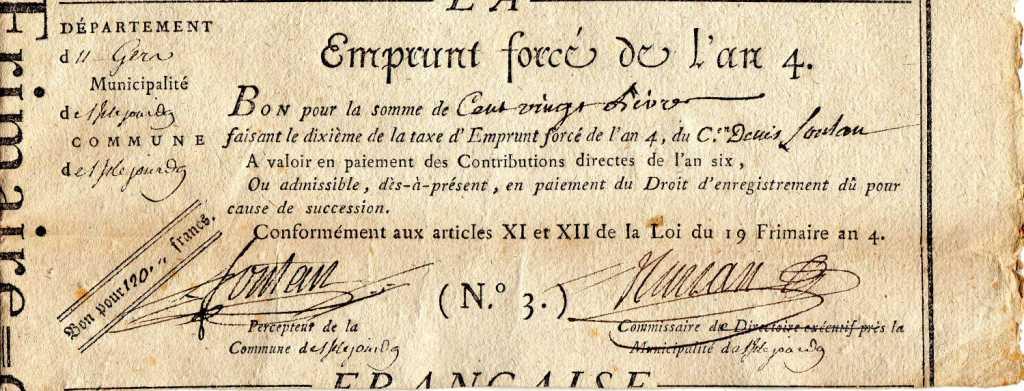 LA
Frimaire
DÉPARTEMENT
d u Gers
Municipalité
de l'Isle jourdn
COMMUNE
de l'Isle jourdn
Emprunt forcé de l'an 4.
BON pour la somme de Cent vingt Livres
faisant le dixième de la taxe d'Emprunt forcé de l'an 4, du C.en Denis Loutau
A valoir en paiement des Contributions directes de l'an six,
Ou admissible, dès-à-présent, en paiement du Droit d'enregistrement dû pour
cause de succession.
Conformément aux articles XI et XII de la Loi du 19 Frimaire an 4.
Bon pour 120 ʺ ʺ francs.
(N.º 3.)
Percepteur de la
Commune de l'Isle jourdn
Commissaire du Directoire exécutif près la
Municipalité de l'Isle jourdn
FRANÇAISE